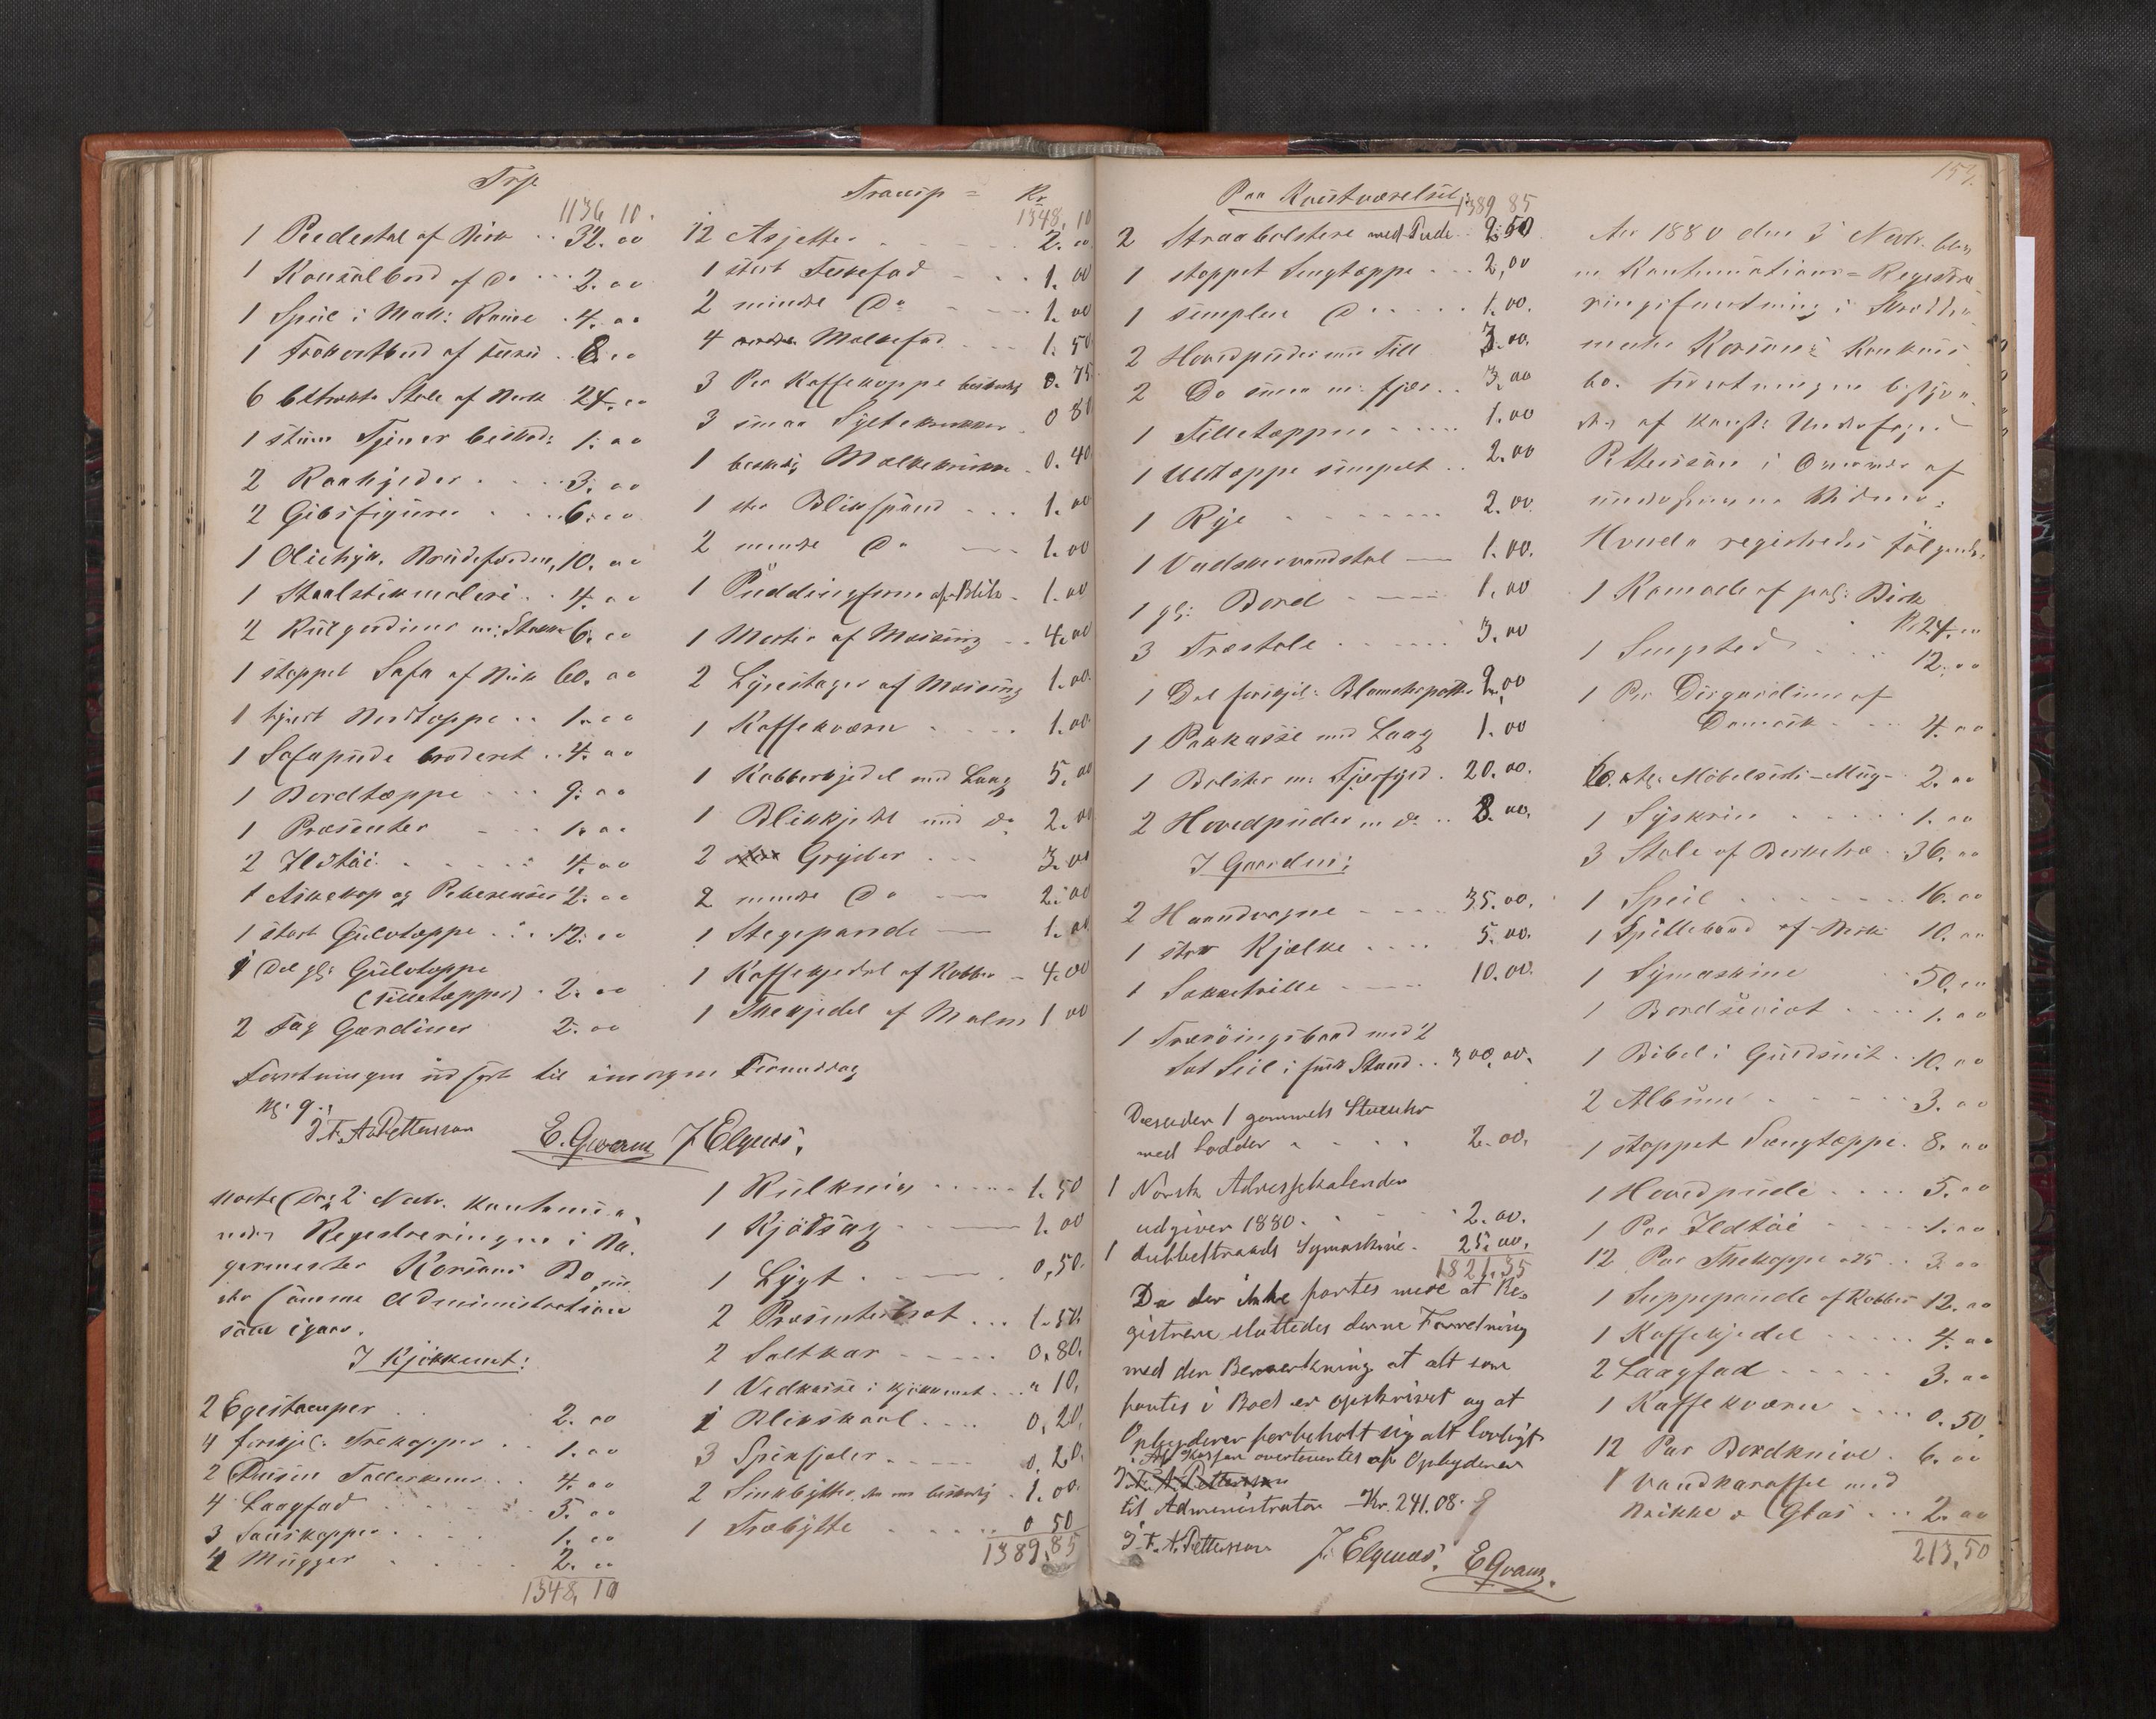 Trsp
1136 10.
1 Piedestal af Birk .. 32.00
1 Konsolbord af Do ... 2.00
1 Speil i Mah: Rame . 4.00
1 Frokostbord af .. 8.00
6 betrukne Stole af Birk 24.00
1 Tjener beskad: 1.00
2 3.00
2 Gibsfigurer ... 6.00
1 Olietryk, Brudefærden, 10.00
1 Staalstikmaleri .. 4.00
2 Rulgardiner m: 6.00
1 stoppet Sofa af Birk 60.00
1 Bordtæppe .. 1.00
1 Sofapude broderet .. 4.00
1 Bordtæppe ... 9.00
1 Presenter - .. 1.00
2 Ildtöi ..... 4.00
1 Askekop og 2.00
1 stort Gulvtæppe ... 12.00
1 Del gl: Gulvtæppe
(Filletæpper) . 2.00
2 Fag Gardiner 2.00
Forretningen udsat til imorgen Formiddag
Kl: 9.
J. F. A. Pettersson E. Gvam J Elgenes.
næste Dag 2 Novbr. kontinu-
eredes Registreringen i Ba-
germester Korsans Bo un-
der samme Administration
som igaar.
I Kjøkkenet:
2 Egestamper 2.00
4 forskjel: Trækopper .. 1.00
2 Dusin Tallerkener .. 4.00
4 Laagfad 5.00
3 Sauskopper .... 1.00
4 Mugger 2.00
1348,10
Transp = Kr
1348,10
12 Asjetter 2.00
1 stort Fiskefad 1.00
2 mindre Do 1.00
4 Melkefad 1.50
3 Par Kaffekopper beskadig 0.75
3 smaa Syltekrukker 0 80
1 beskadig Melkekrukke 0.40
1 stor Blikspand ... 1.00
2 mindre Do 1.00
1 Puddingform af Blik - 1.00
1 Morter af Messing .. 4.00
2 Lysestager af Messing 1.00
1 Kaffekværn .... 1.00
1 Kobberkjedel med Laag 5.00
1 Blikkjedel med do 2.00
2 Gryder ... 3.00
2 mindre Do 2.00
1 Stegepande 1.00
1 Kaffekjedel af Kobber - 4.00
1 Thekjedel af Malm 1 00
1 Hulkniv ..... 1.50
1 Kjötsag 1.00
1 Lygt 0,50.
2 Presenterbret ... 1.50
2 Saltkar 0.80.
1 Vedkasse i Kjökkenet ... " 10.
1 Blikskaal .... 0,20.
3 Spekfjeler ..... 0,20.
2 Sinkbytter, den ene beskadig . 1.00.
1 Træbytte 0 50
1389,85
Paa Kvistværelset:
1389 85
2 Straabolstere med Pude .. 2.50
1 stoppet Sengtæppe ... 2,00
1 simplere Do ..... 1.00.
2 Hovedpuder med Fill 3.00.
2 Do smaa m: fjær .. 3,00
1 Filletæppe 1.00
1 Uldtæppe simpelt .. 2.00
1 Rye 2.00
1 Vadskevandstol 1.00.
1 gl: Bord 1.00
3 Træstole ...... 3.00
1 Del forskjel: Blomsterpotter 2.00
1 Pakkasse med Laag 1.00
1 Bolster m: Fjærfyld . 20.00.
2 Hovedpuder m do .. 8.00,
I Gaarden:
2 Haandvogne 35.00.
1 stor Kjælke .... 5.00.
1 Sækketrille 10.00.
1 Treröringsbaad med 2
Sæt Seil i god Stand .. 300.00.
Desuden 1 gammelt Stueuhr
med Lodder 2.00.
1 Norsk Adressekalender
udgiven 1880. 2.00.
1 dubbelttraads Symaskine. 25.00,
1821.35
Da der ikke fantes mere at Re-
gistrere sluttedes denne Forretning
med den Bemærkning at alt som
fantes i Boet er opskrivet og at
Opbyderen forbeholdt sig alt lovligt.
Af Kassen overleveredes af Opbyderen
J. F. A. Pettersson
til Administrator Kr. 241.08.
J. F. A. Pettersson J. Elgenes. E Gvam.
157.
Aar 1880 den 3 Novbr. blev
en Kontinuations-Registre-
ringsforretning i Skrædder-
mester Korsans Konkurs
bo. Forretningen bestyre-
des af konst: Underfoged
Pettersson i Overvær af
undertegnede Vidner:
Hvorda registredes fölgende,
1 Komode af pol: Birk
Kr 24.00
1 Sengsted 12.00
1 Par Dörgardiner af
Damask 4.00
6 . 2.00
1 Syskrin 1.00
3 Stole af Birketræ . 36.00
1 Speil 16.00
1 Spillebord af Birk 10.00
1 Symaskine 50.00
1 Bordservict .... 1.00
1 Bibel i Guldsnit .. 10.00
2 Album 3.00
1 stoppet Sængtæppe. 8.00
1 Hovedpude .... 5.00
1 Par Ildtöi 1.00
12 Par Thekopper 3.00
1 Suppepande af Kobber 12.00
1 Kaffekjedel 4.00
2 Laagfad 3.00
1 Kaffekværn .... 0.50
12 Par Bordknive . 6.00
1 Vandkaraffel med
Brikke & Glas ... 2.00
213,50